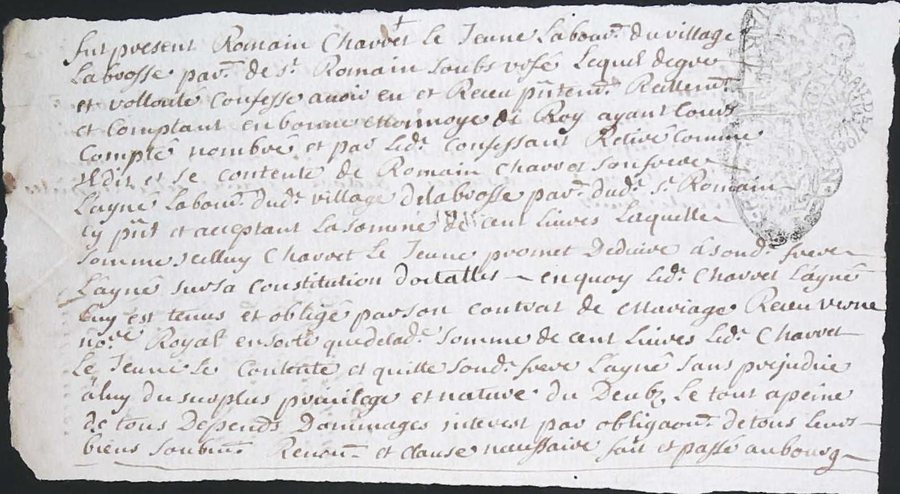 fut present Romain Charret Le Jeune Labour. du village
Labrosse par. de st. Romain soubs Vrfé Lequel de gre
et vollonté Confesse avoir eu et Receu pntemt. Reellemt.
et Comptant en bonne monnoye de Roy ayant Cours
Compté nombré et par Led. Confessant Retiré Comme
Il dit et se contente de Romain Charret son frere
Layné Labour. dud. village de Labrosse par. dud. st. Romain
Cy pnt et acceptant La somme de Cent Livres Laquelle
somme Icelluy Charret Le Jeune promet Deduire à sond. frere
Layné sur sa Constitution dotalle en quoy Led. Charret Layné
Luy est tenus et obligé par son contrat de Mariage Receu
no.re Royal en sorte que de lad. somme de cent Livres Led. Charret
Le Jeune Se Contente et quitte sond. frere Layné sans prejudice
à luy du surplus privilege et nature du Deub. Le tout a peine
de tous Despends Dommages interest par obligaon. de tous Leurs
biens Soubm. Renon. et clause necessaire fait et passé au bourg